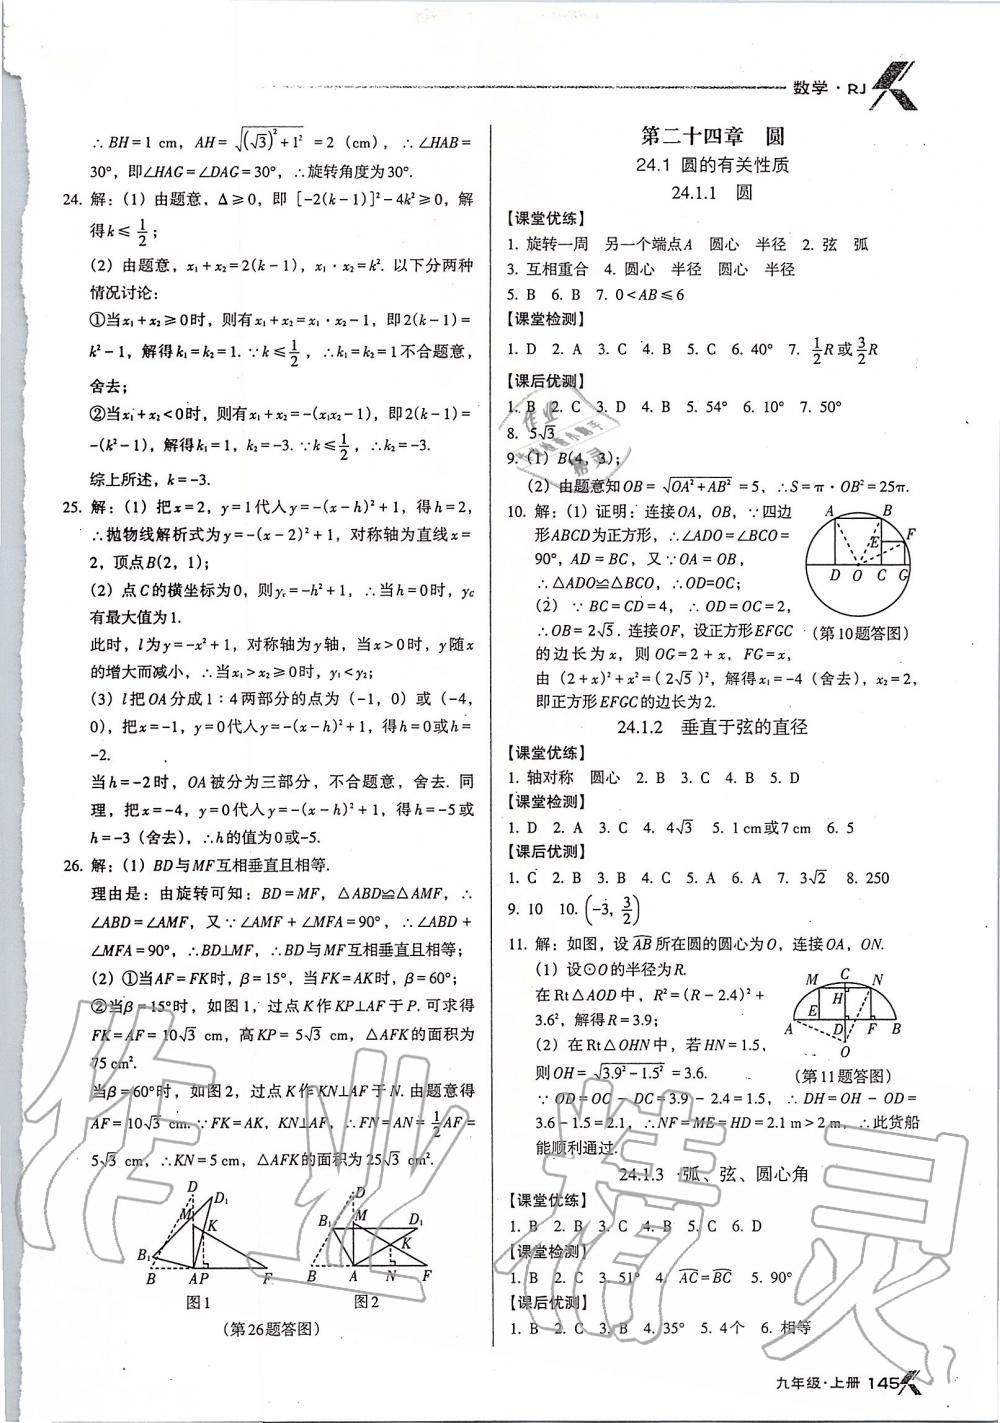 数学·RJ
∴BH=1 cm，AH=√((√3)²+1²)=2（cm），∴∠HAB=
30°，即∠HAG=∠DAG=30°，∴旋转角度为30°.
24. 解：（1）由题意，Δ≥0，即［-2(k-1)］²-4k²≥0，解
得k≤1/2；
（2）由题意，x₁+x₂=2(k-1)，x₁·x₂=k². 以下分两种
情况讨论：
①当x₁+x₂≥0时，则有x₁+x₂=x₁·x₂-1，即2(k-1)=
k²-1，解得k₁=k₂=1. ∵k≤1/2，∴k₁=k₂=1不合题意，
舍去；
②当x₁+x₂<0时，则有x₁+x₂=-(x₁x₂-1)，即2(k-1)=
-(k²-1)，解得k₁=1，k₂=-3. ∵k≤1/2，∴k₂=-3.
综上所述，k=-3.
25. 解：（1）把x=2，y=1代入y=-(x-h)²+1，得h=2，
∴抛物线解析式为y=-(x-2)²+1，对称轴为直线x=
2，顶点B(2，1)；
（2）点C的横坐标为0，则y_C=-h²+1，∴当h=0时，y_C
有最大值为1.
此时，l为y=-x²+1，对称轴为y轴，当x>0时，y随x
的增大而减小，∴当x₁>x₂>0时，y₁<y₂；
（3）l把OA分成1∶4两部分的点为（-1，0）或（-4，
0），把x=-1，y=0代入y=-(x-h)²+1，得h=0或h=
-2.
当h=-2时，OA被分为三部分，不合题意，舍去. 同
理，把x=-4，y=0代入y=-(x-h)²+1，得h=-5或
h=-3（舍去），∴h的值为0或-5.
26. 解：（1）BD与MF互相垂直且相等.
理由是：由旋转可知：BD=MF，△ABD≌△AMF，∴
∠ABD=∠AMF，又∵∠AMF+∠MFA=90°，∴∠ABD+
∠MFA=90°，∴BD⊥MF，∴BD与MF互相垂直且相等；
（2）①当AF=FK时，β=15°，当FK=AK时，β=60°；
②当β=15°时，如图1，过点K作KP⊥AF于P. 可求得
FK=AF=10√3 cm，高KP=5√3 cm，△AFK的面积为
75 cm².
当β=60°时，如图2，过点K作KN⊥AF于N. 由题意得
AF=10√3 cm. ∵FK=AK，KN⊥AF，∴FN=AN=1/2AF=
5√3 cm，∴KN=5 cm，△AFK的面积为25√3 cm².
D D₁ M K B₁ B A P F
图1
D M B₁ D₁ K B A N F
图2
（第26题答图）
第二十四章 圆
24.1 圆的有关性质
24.1.1 圆
【课堂优练】
1. 旋转一周 另一个端点A 圆心 半径 2. 弦 弧
3. 互相重合 4. 圆心 半径 圆心 半径
5. B 6. B 7. 0<AB≤6
【课堂检测】
1. D 2. A 3. C 4. B 5. C 6. 40° 7. 1/2R或3/2R
【课后优测】
1. B 2. C 3. D 4. B 5. 54° 6. 10° 7. 50°
8. 5√3
9.（1）B(4，3)；
（2）由题意知OB=√(OA²+AB²)=5，∴S=π·OB²=25π.
10. 解：（1）证明：连接OA，OB，∵四边
形ABCD为正方形，∴∠ADO=∠BCO=
90°，AD=BC，又∵OA=OB，
∴△ADO≌△BCO，∴OD=OC；
（2）∵BC=CD=4，∴OD=OC=2，
∴OB=2√5. 连接OF，设正方形EFGC
的边长为x，则OG=2+x，FG=x，
由（2+x）²+x²=（2√5）²，解得x₁=-4（舍去），x₂=2，
即正方形EFGC的边长为2.
A B E F D O C G
（第10题答图）
24.1.2 垂直于弦的直径
【课堂优练】
1. 轴对称 圆心 2. B 3. B 4. B 5. D
【课堂检测】
1. D 2. A 3. C 4. 4√3 5. 1 cm或7 cm 6. 5
【课后优测】
1. C 2. B 3. B 4. C 5. A 6. A 7. 3√2 8. 250
9. 10 10. (-3，3/2)
11. 解：如图，设AB所在圆的圆心为O，连接OA，ON.
（1）设⊙O的半径为R.
在Rt△AOD中，R²=(R-2.4)²+
3.6²，解得R=3.9；
（2）在Rt△OHN中，若HN=1.5，
则OH=√(3.9²-1.5²)=3.6.
∵OD=OC-DC=3.9-2.4=1.5，∴DH=OH-OD=
3.6-1.5=2.1，∴NF=ME=HD=2.1 m>2 m，∴此货船
能顺利通过.
M C N E H A D F B O
（第11题答图）
24.1.3 弧、弦、圆心角
【课堂优练】
1. B 2. D 3. B 4. B 5. C 6. D
【课堂检测】
1. B 2. C 3. 51° 4. AC=BC 5. 90°
【课后优测】
1. B 2. C 3. B 4. 35° 5. 4个 6. 相等
九年级·上册 145
作业精灵